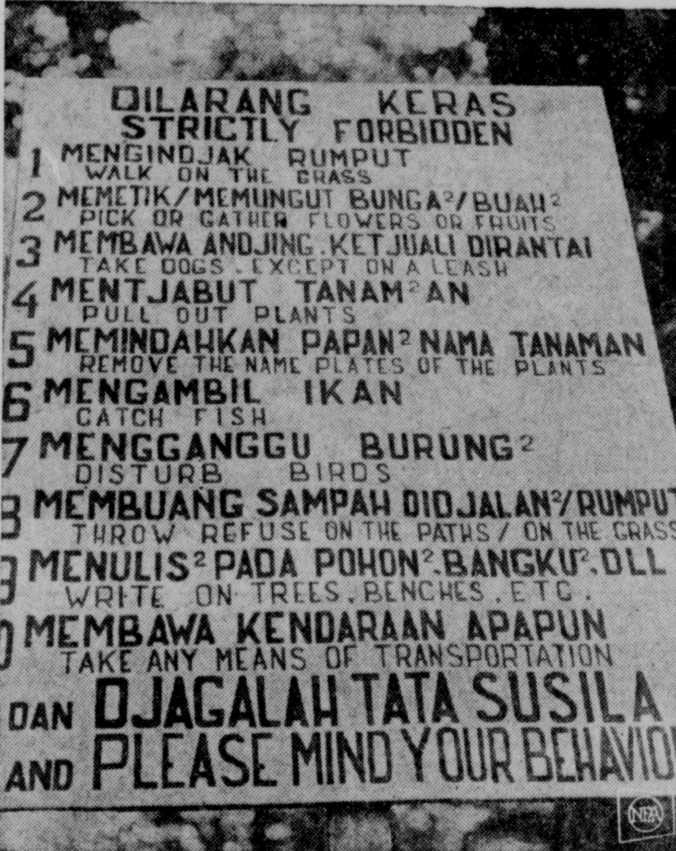 DILARANG KERAS
STRICTLY FORBIDDEN
1 MENGINDJAK RUMPUT
WALK ON THE GRASS
2 MEMETIK/MEMUNGUT BUNGA²/BUAH²
PICK OR GATHER FLOWERS OR FRUITS
3 MEMBAWA ANDJING.KETJUALI DIRANTAI
TAKE DOGS.EXCEPT ON A LEASH
4 MENTJABUT TANAM²AN
PULL OUT PLANTS
5 MEMINDAHKAN PAPAN² NAMA TANAMAN
REMOVE THE NAME PLATES OF THE PLANTS
6 MENGAMBIL IKAN
CATCH FISH
7 MENGGANGGU BURUNG²
DISTURB BIRDS
8 MEMBUANG SAMPAH DIDJALAN²/RUMPUT
THROW REFUSE ON THE PATHS/ON THE GRASS
9 MENULIS² PADA POHON².BANGKU².DLL
WRITE ON TREES.BENCHES.ETC.
0 MEMBAWA KENDARAAN APAPUN
TAKE ANY MEANS OF TRANSPORTATION
DAN DJAGALAH TATA SUSILA
AND PLEASE MIND YOUR BEHAVIO
NEA